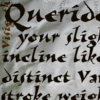 Querido
your sligh
incline like
distinct Var
stroke weigh